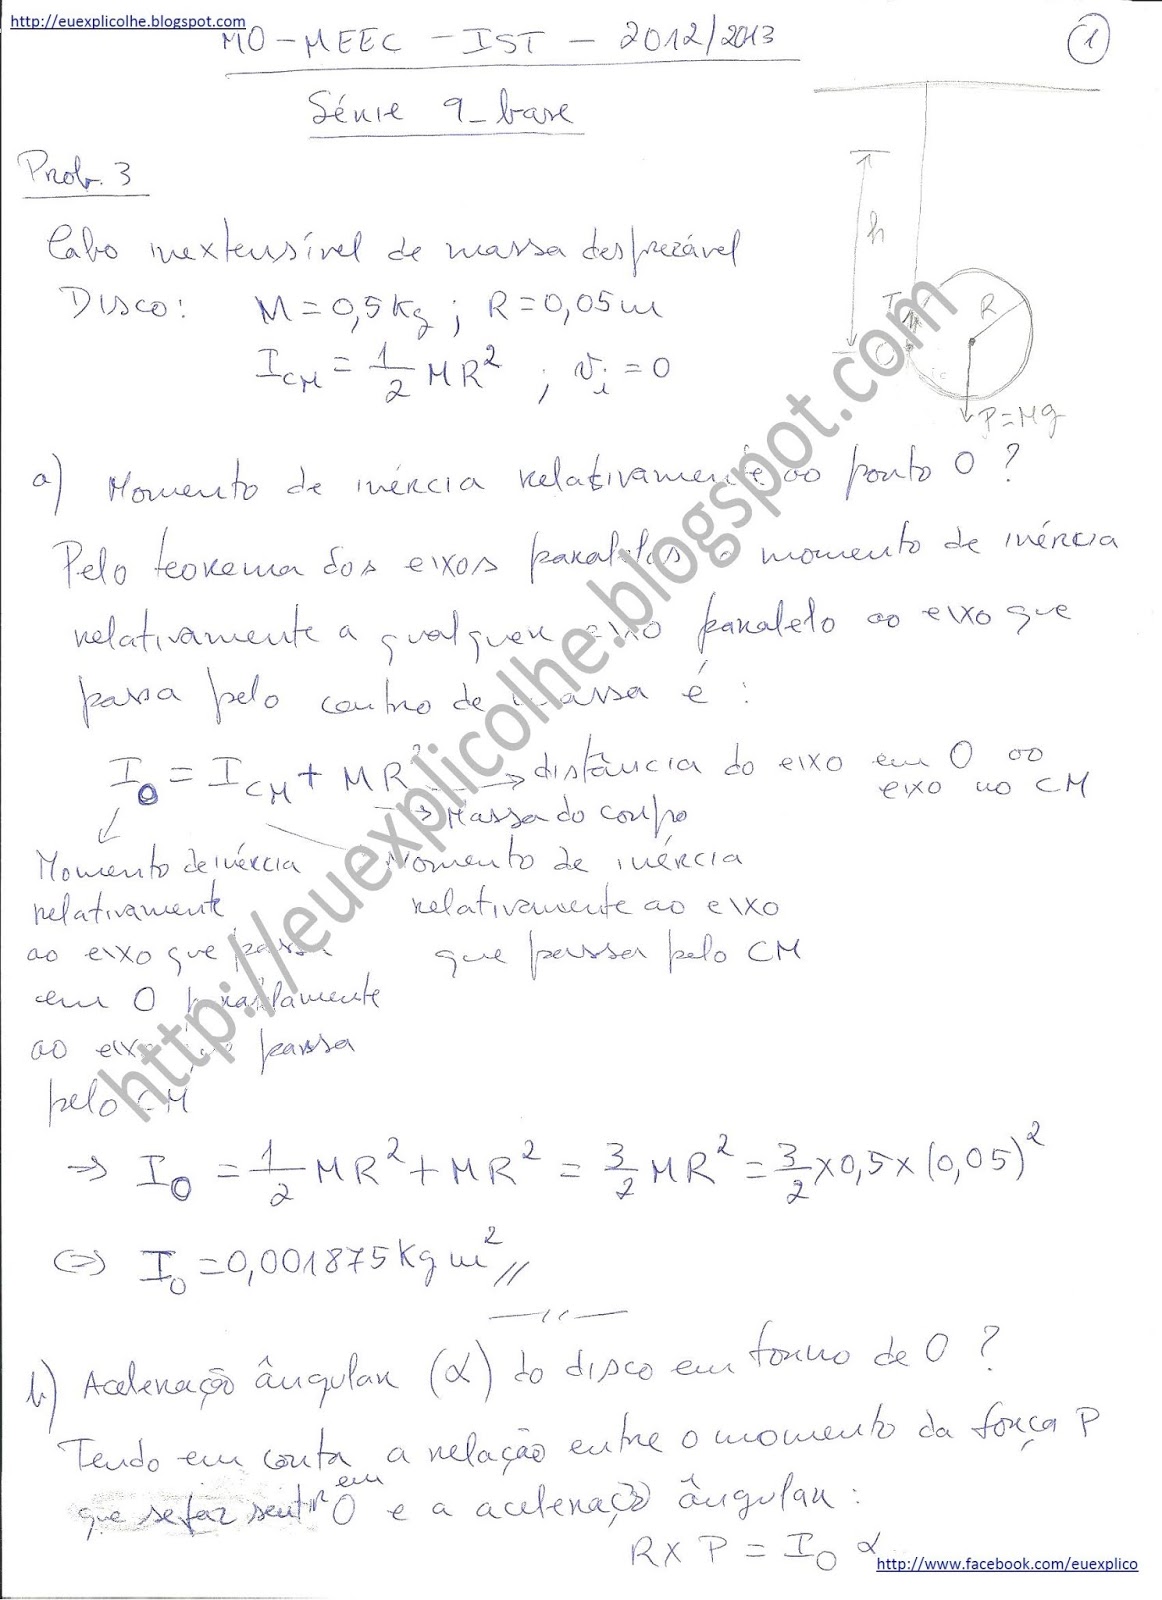 http://euexplicolhe.blogspot.com
MO-MEEC-IST-2012/2013
1
Série 9_base
Prob. 3
h
T
R
O
P=Mg
Cabo inextensível de massa desprezável
Disco: M=0,5Kg; R=0,05m
I_CM = 1/2 MR²; v_i = 0
a) Momento de inércia relativamente ao ponto O?
Pelo teorema dos eixos paralelos o momento de inércia
relativamente a qualquer eixo paralelo ao eixo que
passa pelo centro de massa é:
I_O = I_CM + MR² → distância do eixo em O ao
eixo no CM
→ Massa do corpo
Momento de inércia
relativamente
ao eixo que passa
em O paralelamente
ao eixo que passa
pelo CM
Momento de inércia
relativamente ao eixo
que passa pelo CM
⇒ I_O = 1/2 MR² + MR² = 3/2 MR² = 3/2 × 0,5 × (0,05)²
⇔ I_O = 0,001875 Kg m² //
b) Aceleração ângular (α) do disco em torno de O?
Tendo em conta a relação entre o momento da força P
que se faz sentir em O e a aceleração ângular:
R × P = I_O α
http://euexplicolhe.blogspot.com
http://www.facebook.com/euexplico